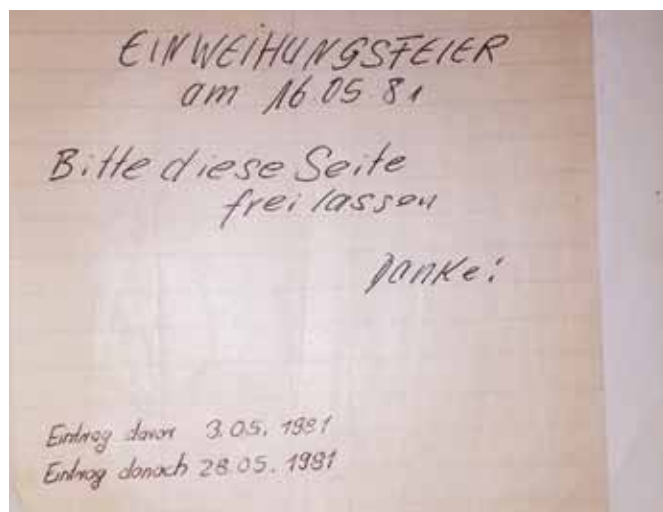 EINWEIHUNGSFEIER
am 16 05 81
Bitte diese Seite
frei lassen
Danke!
Eintrag davor 3.05.1981
Eintrag danach 28.05.1981